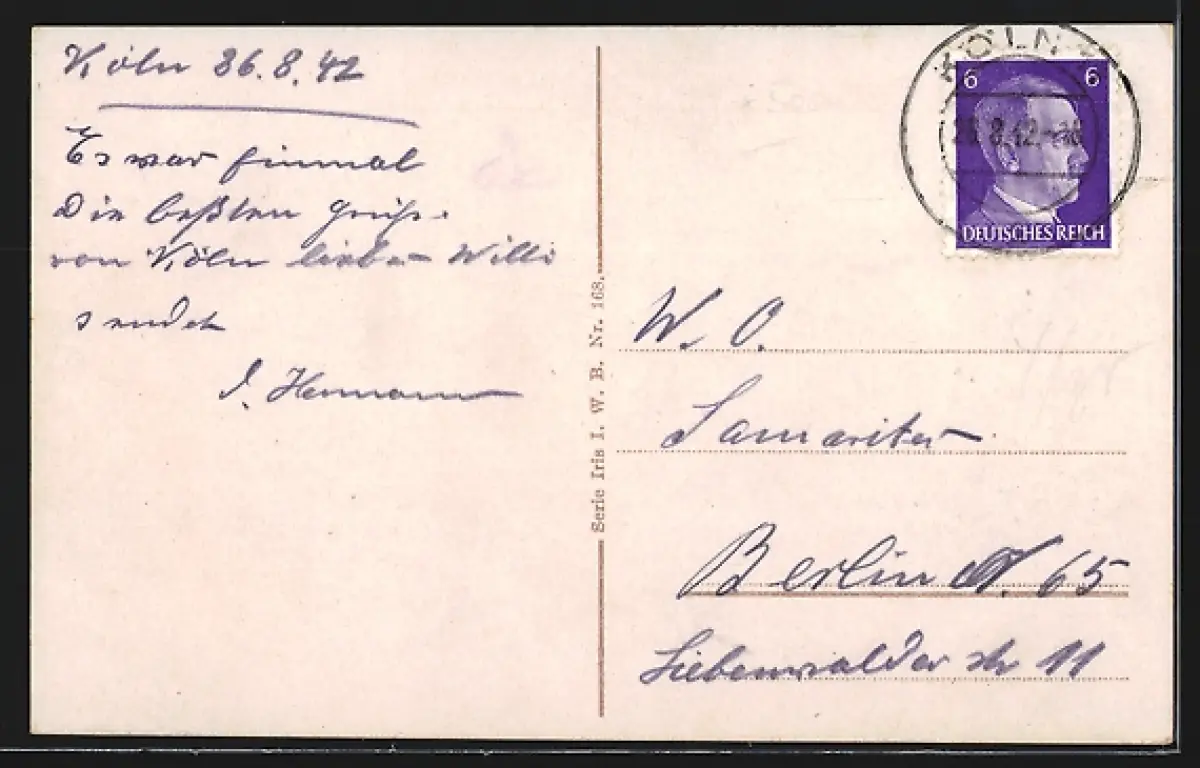 Köln 26.8.42
Es war einmal
Die beßten Grüße
von Köln lieber Willi
sendet
J. Hermann
Serie Iris I. W. B. Nr. 168.
KÖLN
8.42.
6 6
DEUTSCHES REICH
W. O.
Samariter
Berlin N. 65
Liebenwalder str 11